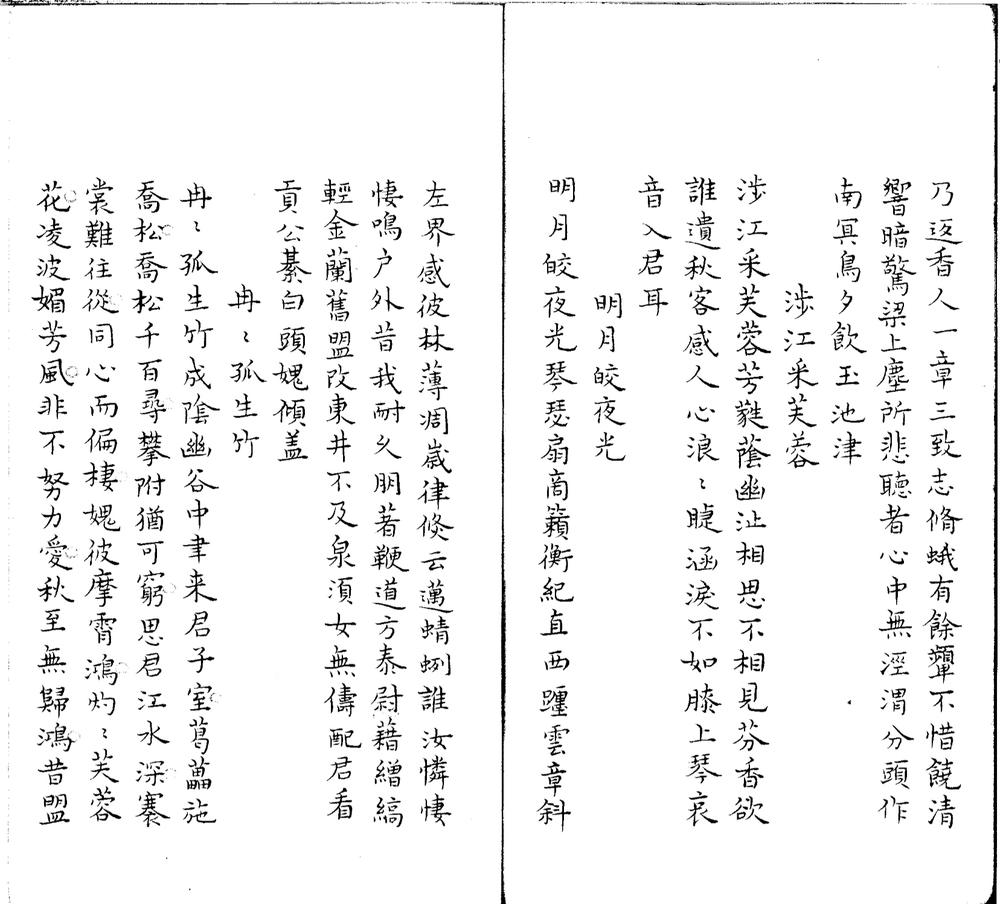 乃返香人一章三致志脩蛾有餘顰不惜饒清
響暗驚梁上塵所悲聽者心中無涇渭分頭作
南冥鳥夕飲玉池津
涉江采芙蓉
涉江采芙蓉芳蕤蔭幽沚相思不相見芬香欲
誰遺秋客感人心浪〻睫涵淚不如膝上琴哀
音入君耳
明月皎夜光
明月皎夜光琴瑟扇商籟衡紀直西躔雲章斜
左界感彼林薄凋歲律倐云邁蜻蛚誰汝憐悽
悽鳴户外昔我耐久朋著鞭道方泰尉藉繒縞
輕金蘭舊盟改東井不及泉湏女無儔配君看
貢公綦白頭媿傾盖
冉〻孤生竹
冉〻孤生竹成陰幽谷中聿来君子室葛藟施
喬松喬松千百尋攀附猶可窮思君江水深褰
裳難往從同心而偏棲媿彼摩霄鴻灼〻芙蓉
花凌波媚芳風非不努力愛秋至無歸鴻昔盟